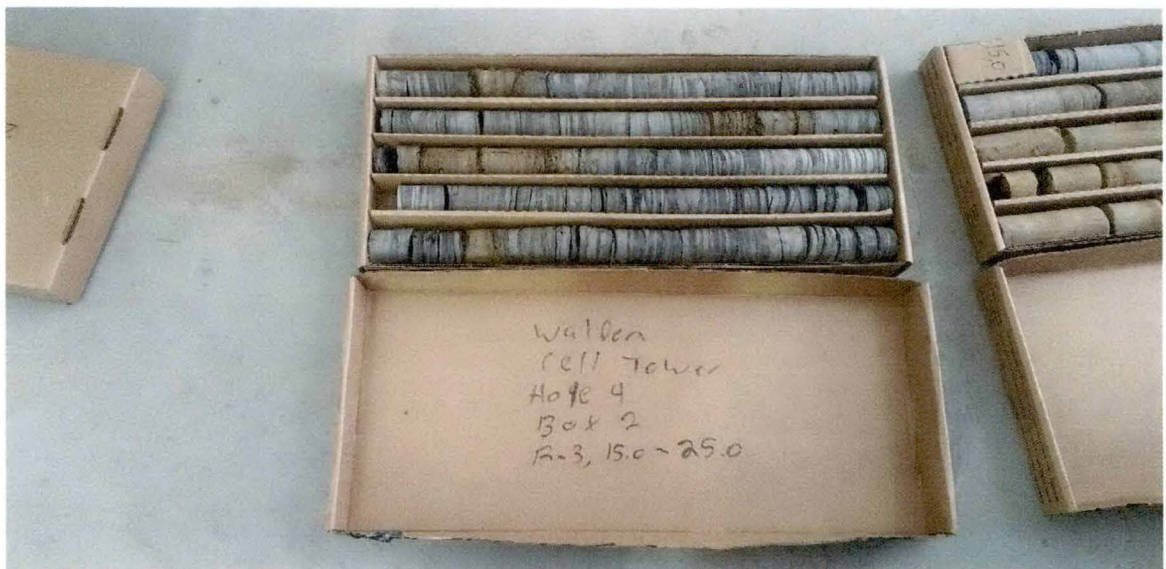 Walden
Cell Tower
Hole 4
Box 2
R-3, 15.0 - 25.0
15.0